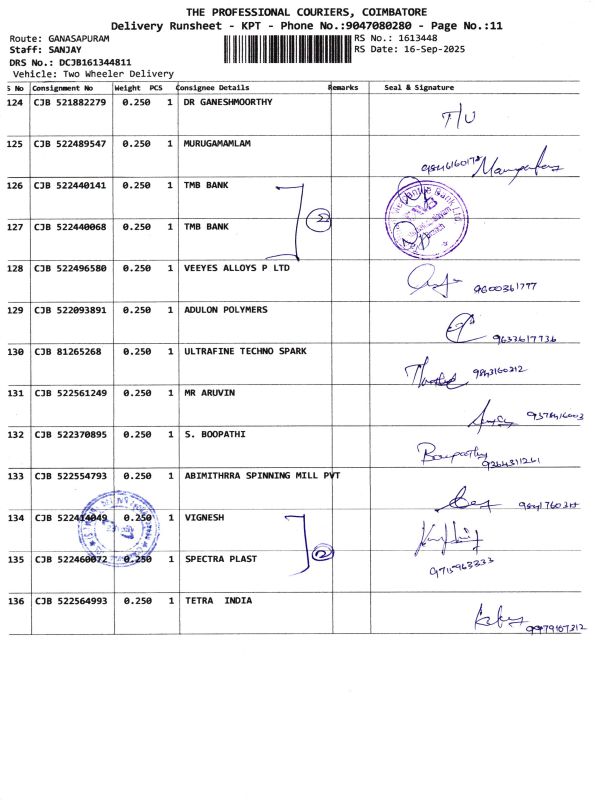 THE PROFESSIONAL COURIERS, COIMBATORE
Delivery Runsheet - KPT - Phone No.:9047080280 - Page No.:11
Route: GANASAPURAM RS No.: 1613448
Staff: SANJAY RS Date: 16-Sep-2025
DRS No.: DCJB161344811
Vehicle: Two Wheeler Delivery
S No Consignment No Weight PCS Consignee Details Remarks Seal & Signature
124 CJB 521882279 0.250 1 DR GANESHMOORTHY T/U
125 CJB 522489547 0.250 1 MURUGAMAMLAM
126 CJB 522440141 0.250 1 TMB BANK
127 CJB 522440068 0.250 1 TMB BANK
128 CJB 522496580 0.250 1 VEEYES ALLOYS P LTD 9600361777
129 CJB 522093891 0.250 1 ADULON POLYMERS 9633617736
130 CJB 81265268 0.250 1 ULTRAFINE TECHNO SPARK 9843160312
131 CJB 522561249 0.250 1 MR ARUVIN
132 CJB 522370895 0.250 1 S. BOOPATHI Boopathy
133 CJB 522554793 0.250 1 ABIMITHRRA SPINNING MILL PVT
134 CJB 522414049 0.250 1 VIGNESH
135 CJB 522460072 0.250 1 SPECTRA PLAST 9715963333
136 CJB 522564993 0.250 1 TETRA INDIA